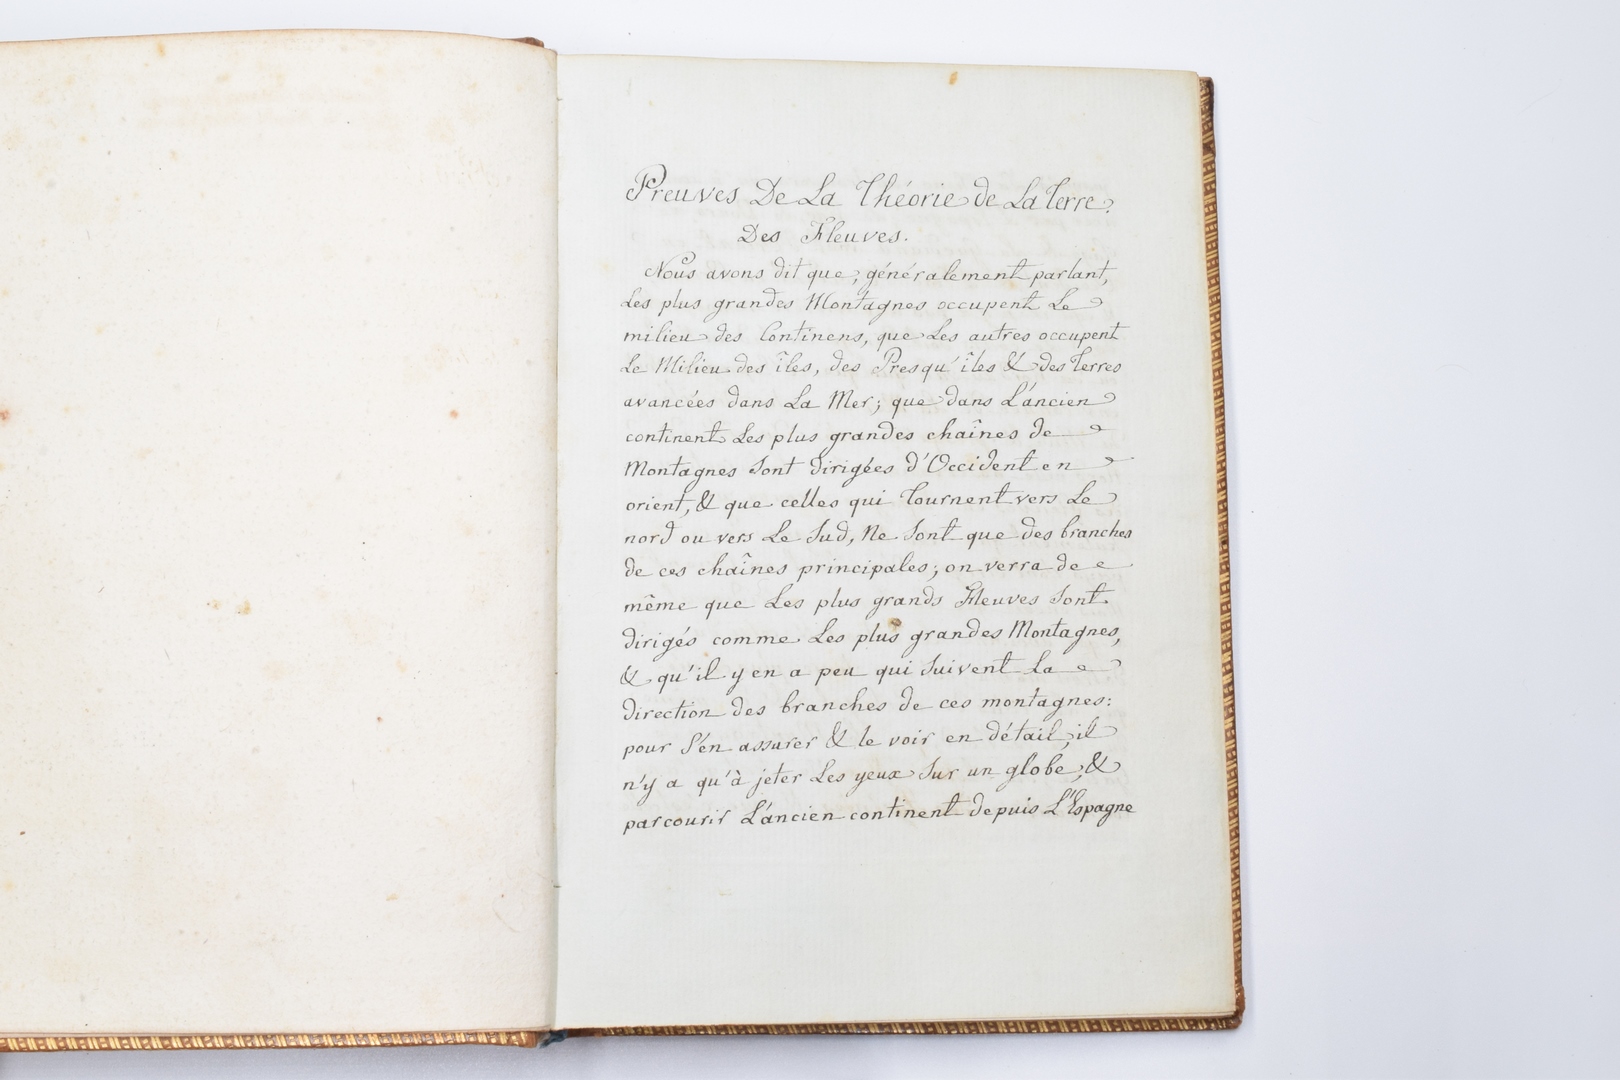 Preuves De La Théorie de La Terre.
Des Fleuves.
Nous avons dit que, généralement parlant,
Les plus grandes Montagnes occupent Le
milieu des Continens, que Les autres occupent
Le Milieu des îles, des Presqu'îles & des Terres
avancées dans La Mer; que dans L'ancien
continent Les plus grandes chaînes de
Montagnes sont dirigées d'Occident en
orient, & que celles qui Tournent vers Le
nord ou vers Le Sud, Ne Sont que des branches
de ces chaînes principales; on verra de
même que Les plus grands Fleuves Sont
dirigés comme Les plus grandes Montagnes,
& qu'il y en a peu qui Suivent La
direction des branches de ces montagnes:
pour S'en assurer & le voir en détail, il
n'y a qu'à jeter Les yeux Sur un globe, &
parcourir L'ancien continent depuis L'Espagne